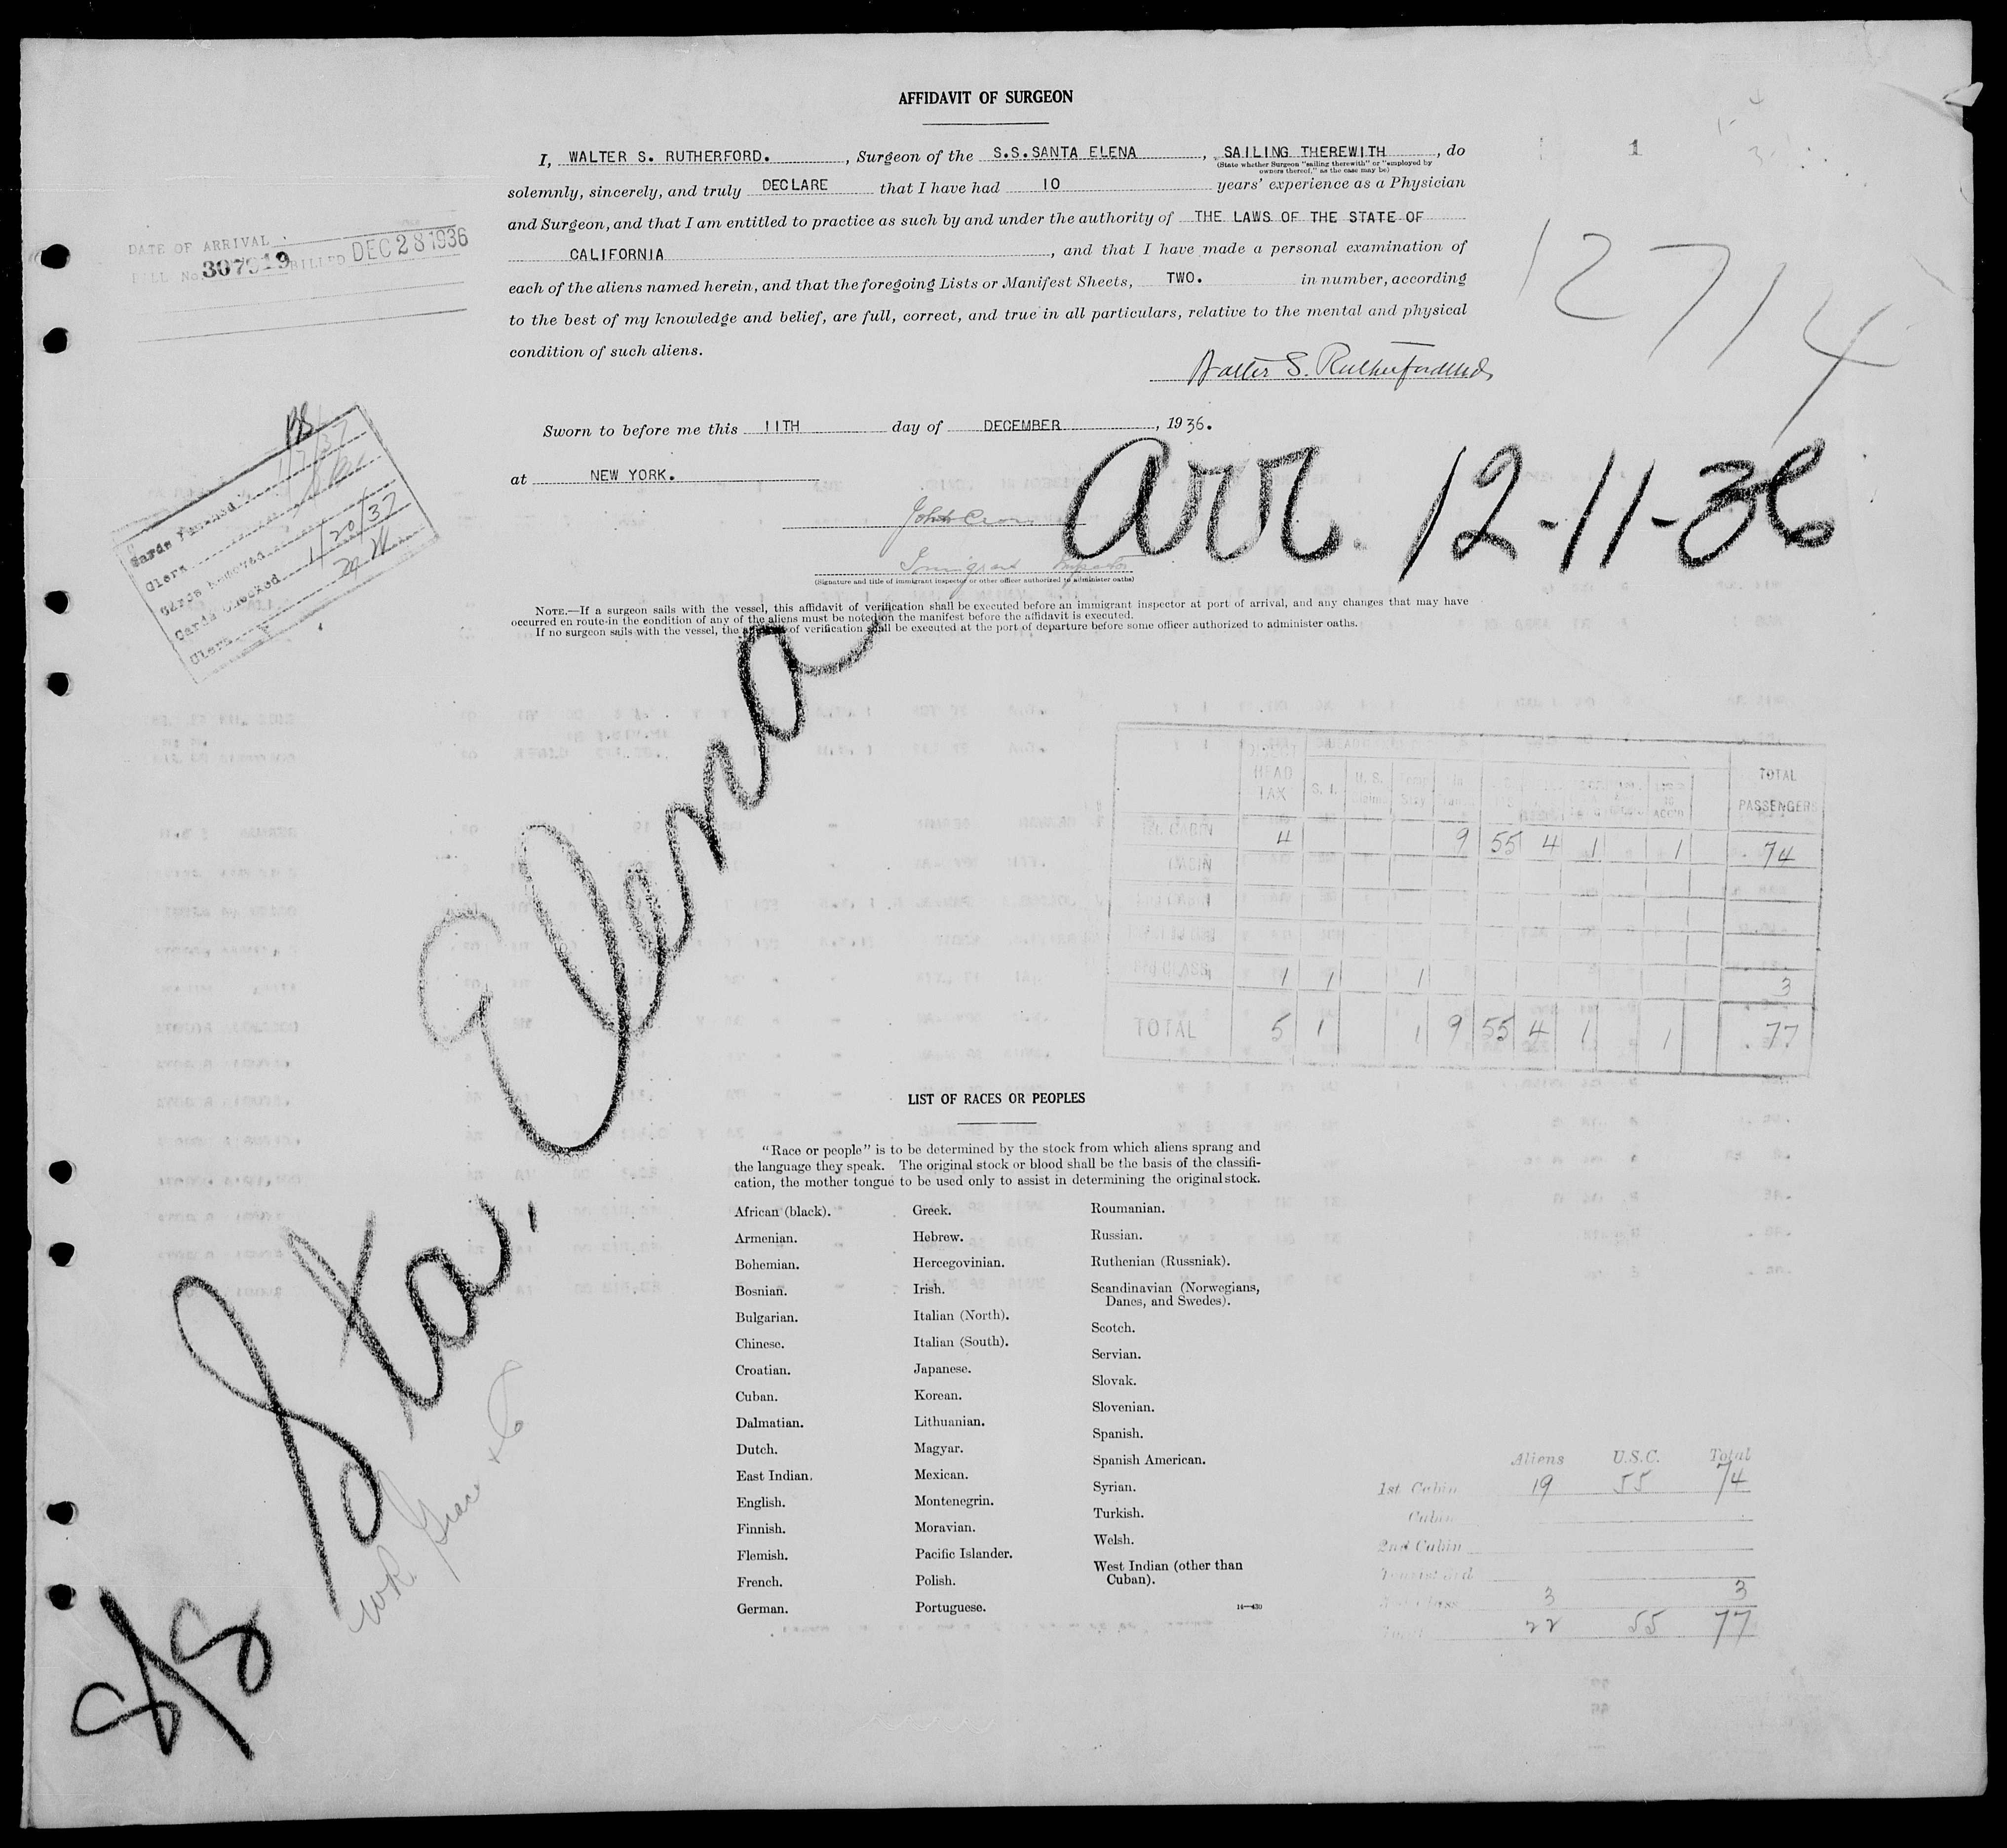 AFFIDAVIT OF SURGEON
I, WALTER S. RUTHERFORD. , Surgeon of the S.S.SANTA ELENA , SAILING THEREWITH , do
(State whether Surgeon "sailing therewith" or "employed by
owners thereof," as the case may be)
solemnly, sincerely, and truly DECLARE that I have had 10 years' experience as a Physician
and Surgeon, and that I am entitled to practice as such by and under the authority of THE LAWS OF THE STATE OF
CALIFORNIA , and that I have made a personal examination of
each of the aliens named herein, and that the foregoing Lists or Manifest Sheets, TWO. in number, according
to the best of my knowledge and belief, are full, correct, and true in all particulars, relative to the mental and physical
condition of such aliens.
Walter S. Rutherford M.D.
Sworn to before me this 11TH day of DECEMBER , 1936.
at NEW YORK.
Immigrant Inspector
(Signature and title of immigrant inspector or other officer authorized to administer oaths)
NOTE.—If a surgeon sails with the vessel, this affidavit of verification shall be executed before an immigrant inspector at port of arrival, and any changes that may have
occurred en route in the condition of any of the aliens must be noted on the manifest before the affidavit is executed.
If no surgeon sails with the vessel, the affidavit of verification shall be executed at the port of departure before some officer authorized to administer oaths.
1
12714
Arr. 12-11-36
DATE OF ARRIVAL
BILL No. 307919 BILLED DEC 28 1936
Cards Punched
Clerk
Cards Removed
Cards Checked 1/20/37
Clerk
S/S Sta. Elena
WR Grace & Co
HEAD TAX S. I. U. S. TOTAL PASSENGERS
1st CABIN 4 9 55 4 1 1 74
CABIN
2nd CABIN
3rd CLASS 1 1 1 3
TOTAL 5 1 1 9 55 4 1 1 77
LIST OF RACES OR PEOPLES
"Race or people" is to be determined by the stock from which aliens sprang and
the language they speak. The original stock or blood shall be the basis of the classifi-
cation, the mother tongue to be used only to assist in determining the original stock.
African (black).
Armenian.
Bohemian.
Bosnian.
Bulgarian.
Chinese.
Croatian.
Cuban.
Dalmatian.
Dutch.
East Indian.
English.
Finnish.
Flemish.
French.
German.
Greek.
Hebrew.
Hercegovinian.
Irish.
Italian (North).
Italian (South).
Japanese.
Korean.
Lithuanian.
Magyar.
Mexican.
Montenegrin.
Moravian.
Pacific Islander.
Polish.
Portuguese.
Roumanian.
Russian.
Ruthenian (Russniak).
Scandinavian (Norwegians,
Danes, and Swedes).
Scotch.
Servian.
Slovak.
Slovenian.
Spanish.
Spanish American.
Syrian.
Turkish.
Welsh.
West Indian (other than
Cuban).
14—430
Aliens U.S.C. Total
1st Cabin 19 55 74
Cabin
2nd Cabin
Tourist 3rd
3rd Class 3 3
Total 22 55 77